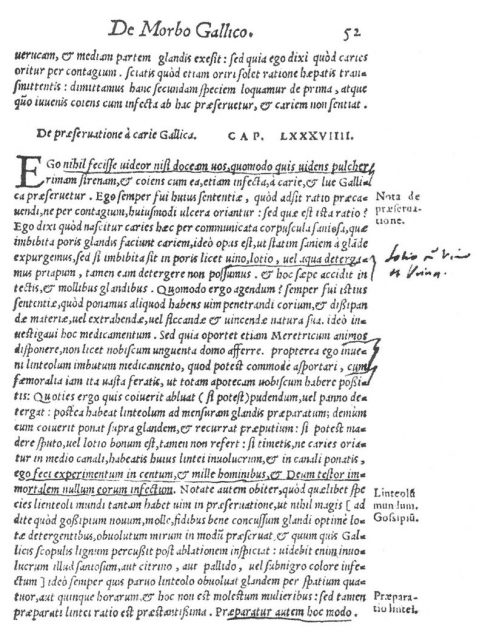 De Morbo Gallico. 52
uerucam, & mediam partem glandis exesit : sed quia ego dixi quòd caries
oritur per contagium. sciatis quòd etiam oriri solet ratione hæpatis trans-
smittentis : dimittamus hanc secundam speciem loquamur de prima, atque
quō iuuenis coiens cum infecta ab hac præseruetur, & cariem non sentiat.
De præseruatione à carie Gallica. CAP. LXXXVIIII.
EGo nihil fecisse uideor nisi doceam uos, quomodo quis uidens pulcher
rimam sirenam, & coiens cum ea, etiam infecta, à carie, & lue Galli
ca præseruetur. Ego semper fui huius sententiæ, quòd adsit ratio præca-
uendi, ne per contagium, huiusmodi ulcera oriantur : sed quæ est ista ratio ?
Ego dixi quòd nascitur caries hæc per communicata corpuscula saniosa, quæ
imbibita poris glandis faciunt cariem, ideò opus est, ut statim saniem à glāde
expurgemus, sed si imbibita sit in poris licet uino, lotio, uel aqua deterga-
mus priapum, tamen eam detergere non possumus. & hoc sæpe accidit in
tectis, & mollibus glandibus. Quomodo ergo agendum ? semper fui istius
sententiæ, quòd ponamus aliquod habens uim penetrandi corium, & dißipan
dæ materiæ, uel extrahendæ, uel siccandæ & uincendæ natura sua. ideò in-
uestigaui hoc medicamentum. Sed quia oportet etiam Meretricum animos
disponere, non licet nobiscum unguenta domo afferre. propterea ego inue-
ni linteolum imbutum medicamento, quod potest commode asportari, cum
fæmoralia iam ita uasta feratis, ut totam apotecam uobiscum habere poßi-
tis: Quoties ergo quis coiuerit abluat ( si potest) pudendum, uel panno de-
tergat : postea habeat linteolum ad mensuram glandis præparatum; demum
cum coiuerit ponat supra glandem, & recurrat præputium : si potest ma-
dere sputo, uel lotio bonum est, tamen non refert : si timetis, ne caries oria-
tur in medio canali, habeatis huius lintei inuolucrum, & in canali ponatis,
ego feci experimentum in centum, & mille hominibus, & Deum testor im-
mortalem nullum eorum infectum. Notate autem obiter, quòd quælibet spe
cies lienteoli mundi tantam habet uim in præseruatione, ut nihil magis [ ad
dite quòd goßipium nouum, molle, fidibus bene concussum glandi optimè lo-
tæ detergentibus, obuolutum mirum in modū præseruat, & quum quis Gal-
licis scopulis lignum percußit post ablationem inspiciat : uidebit enim inuo-
lucrum illud saniosum, aut citrino, aut pallido, uel subnigro colore infe-
ctum ] ideò semper quis paruo linteolo obuoluat glandem per spatium qua-
tuor, aut quinque horarum, & hoc non est molestum mulieribus : sed tamen
præparati lintei ratio est præstantißima. Præparatur autem hoc modo.
Nota de
præserua-
tione.
Lotio i. Vino
Linteolū
mundum.
Gossipiū.
Præpara-
tio lintei.